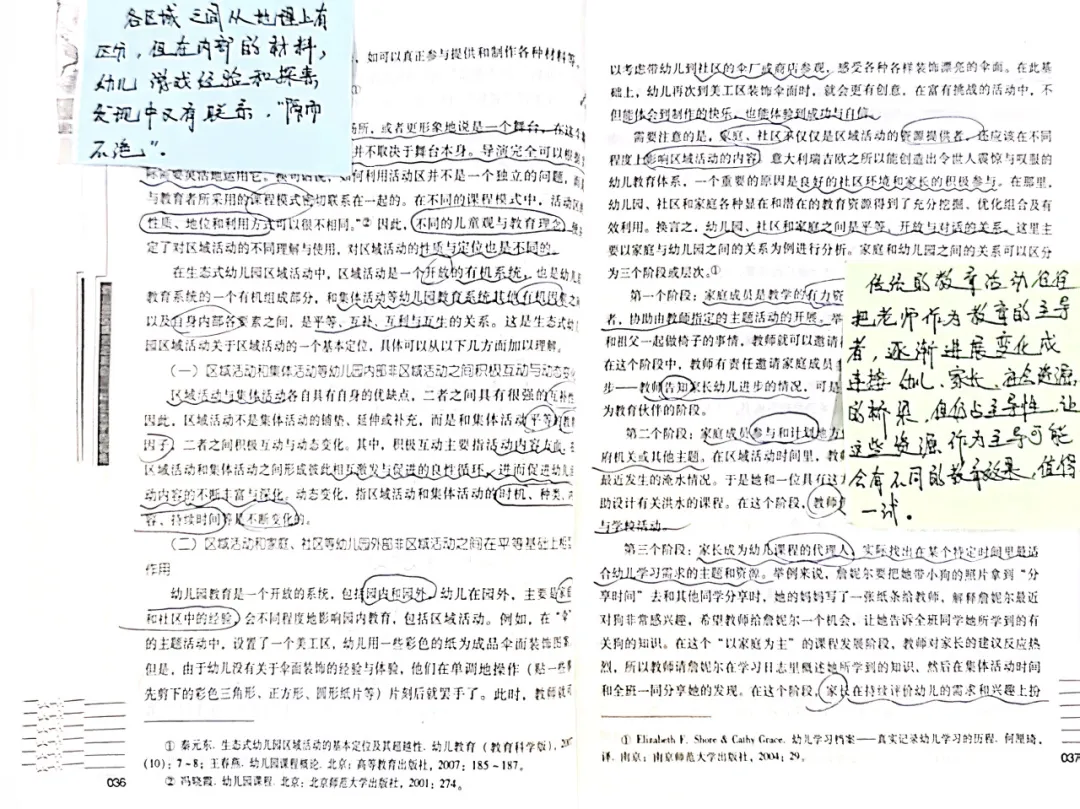 各区域之间从地理上有
区分，但在内部的材料，
幼儿游戏经验和探索
发现中又有联系，“隔而
不绝”。
，如可以真正参与提供和制作各种材料等。
场所，或者更形象地说是一个舞台，在这个
并不取决于舞台本身。导演完全可以根据
际需要灵活地运用它。换句话说，如何利用活动区并不是一个独立的问题，而
与教育者所采用的课程模式密切联系在一起的。在不同的课程模式中，活动区
性质、地位和利用方式可以很不相同。”② 因此，不同的儿童观与教育理念
定了对区域活动的不同理解与使用，对区域活动的性质与定位也是不同的。
在生态式幼儿园区域活动中，区域活动是一个开放的有机系统，也是幼儿
教育系统的一个有机组成部分，和集体活动等幼儿园教育系统其他有机因素之
以及自身内部各要素之间，是平等、互补、互利与互生的关系。这是生态式幼
园区域活动关于区域活动的一个基本定位，具体可以从以下几方面加以理解。
（一）区域活动和集体活动等幼儿园内部非区域活动之间积极互动与动态变
区域活动与集体活动各自具有自身的优缺点，二者之间具有很强的互补性
因此，区域活动不是集体活动的铺垫、延伸或补充，而是和集体活动平等的教
因子，二者之间积极互动与动态变化。其中，积极互动主要指活动内容方面，
区域活动和集体活动之间形成彼此相互激发与促进的良性循环，进而促进幼儿
动内容的不断丰富与深化。动态变化，指区域活动和集体活动的时机、种类、内
容、持续时间等是不断变化的。
（二）区域活动和家庭、社区等幼儿园外部非区域活动之间在平等基础上相
作用
幼儿园教育是一个开放的系统，包括园内和园外，幼儿在园外，主要是家庭
和社区中的经验，会不同程度地影响园内教育，包括区域活动。例如，在“伞”
的主题活动中，设置了一个美工区，幼儿用一些彩色的纸为成品伞面装饰图案
但是，由于幼儿没有关于伞面装饰的经验与体验，他们在单调地操作（贴一些
先剪下的彩色三角形、正方形、圆形纸片等）片刻后就罢手了。此时，教师就可
① 秦元东. 生态式幼儿园区域活动的基本定位及其超越性. 幼儿教育（教育科学版），2007
(10)；7~8；王春燕. 幼儿园课程概论. 北京：高等教育出版社，2007：185~187。
② 冯晓霞. 幼儿园课程. 北京：北京师范大学出版社，2001：274。
036
以考虑带幼儿到社区的伞厂或商店参观，感受各种各样装饰漂亮的伞面。在此基
础上，幼儿再次到美工区装饰伞面时，就会更有创意，在富有挑战的活动中，不
但能体会到制作的快乐，也能体验到成功与自信。
需要注意的是，家庭、社区不仅仅是区域活动的资源提供者，还应该在不同
程度上影响区域活动的内容。意大利瑞吉欧之所以能创造出令世人震惊与叹服的
幼儿教育体系，一个重要的原因是良好的社区环境和家长的积极参与。在那里，
幼儿园、社区和家庭各种显在和潜在的教育资源得到了充分挖掘、优化组合及有
效利用。换言之，幼儿园、社区和家庭之间是平等、开放与对话的关系。这里主
要以家庭与幼儿园之间的关系为例进行分析。家庭和幼儿园之间的关系可以区分
为三个阶段或层次。①
第一个阶段：家庭成员是教学的有力资
者，协助由教师指定的主题活动的开展。举
和祖父一起做椅子的事情，教师就可以邀请
在这个阶段中，教师有责任邀请家庭成员
步——教师告知家长幼儿进步的情况，可是
为教育伙伴的阶段。
第二个阶段：家庭成员参与和计划地方
府机关或其他主题。在区域活动时间里，教
最近发生的淹水情况。于是她和一位具有这方
助设计有关洪水的课程。在这个阶段，教师
与学校活动。
传统的教育活动往往
把老师作为教育的主导
者，逐渐进展变化成
连接幼儿、家长、社会资源
的桥梁，但仍占主导性，让
这些资源作为主导可能
会有不同的教育效果，值得
一试。
第三个阶段：家长成为幼儿课程的代理人，实际找出在某个特定时间里最适
合幼儿学习需求的主题和资源。举例来说，詹妮尔要把她带小狗的照片拿到“分
享时间”去和其他同学分享时，她的妈妈写了一张纸条给教师，解释詹妮尔最近
对狗非常感兴趣，希望教师给詹妮尔一个机会，让她告诉全班同学她所学到的有
关狗的知识。在这个“以家庭为主”的课程发展阶段，教师对家长的建议反应热
烈，所以教师请詹妮尔在学习日志里概述她所学到的知识，然后在集体活动时间
和全班一同分享她的发现。在这个阶段，家长在持续评价幼儿的需求和兴趣上扮
① Elizabeth F. Shore & Cathy Grace. 幼儿学习档案——真实记录幼儿学习的历程. 何厘琦，
译. 南京：南京师范大学出版社，2004：29。
037